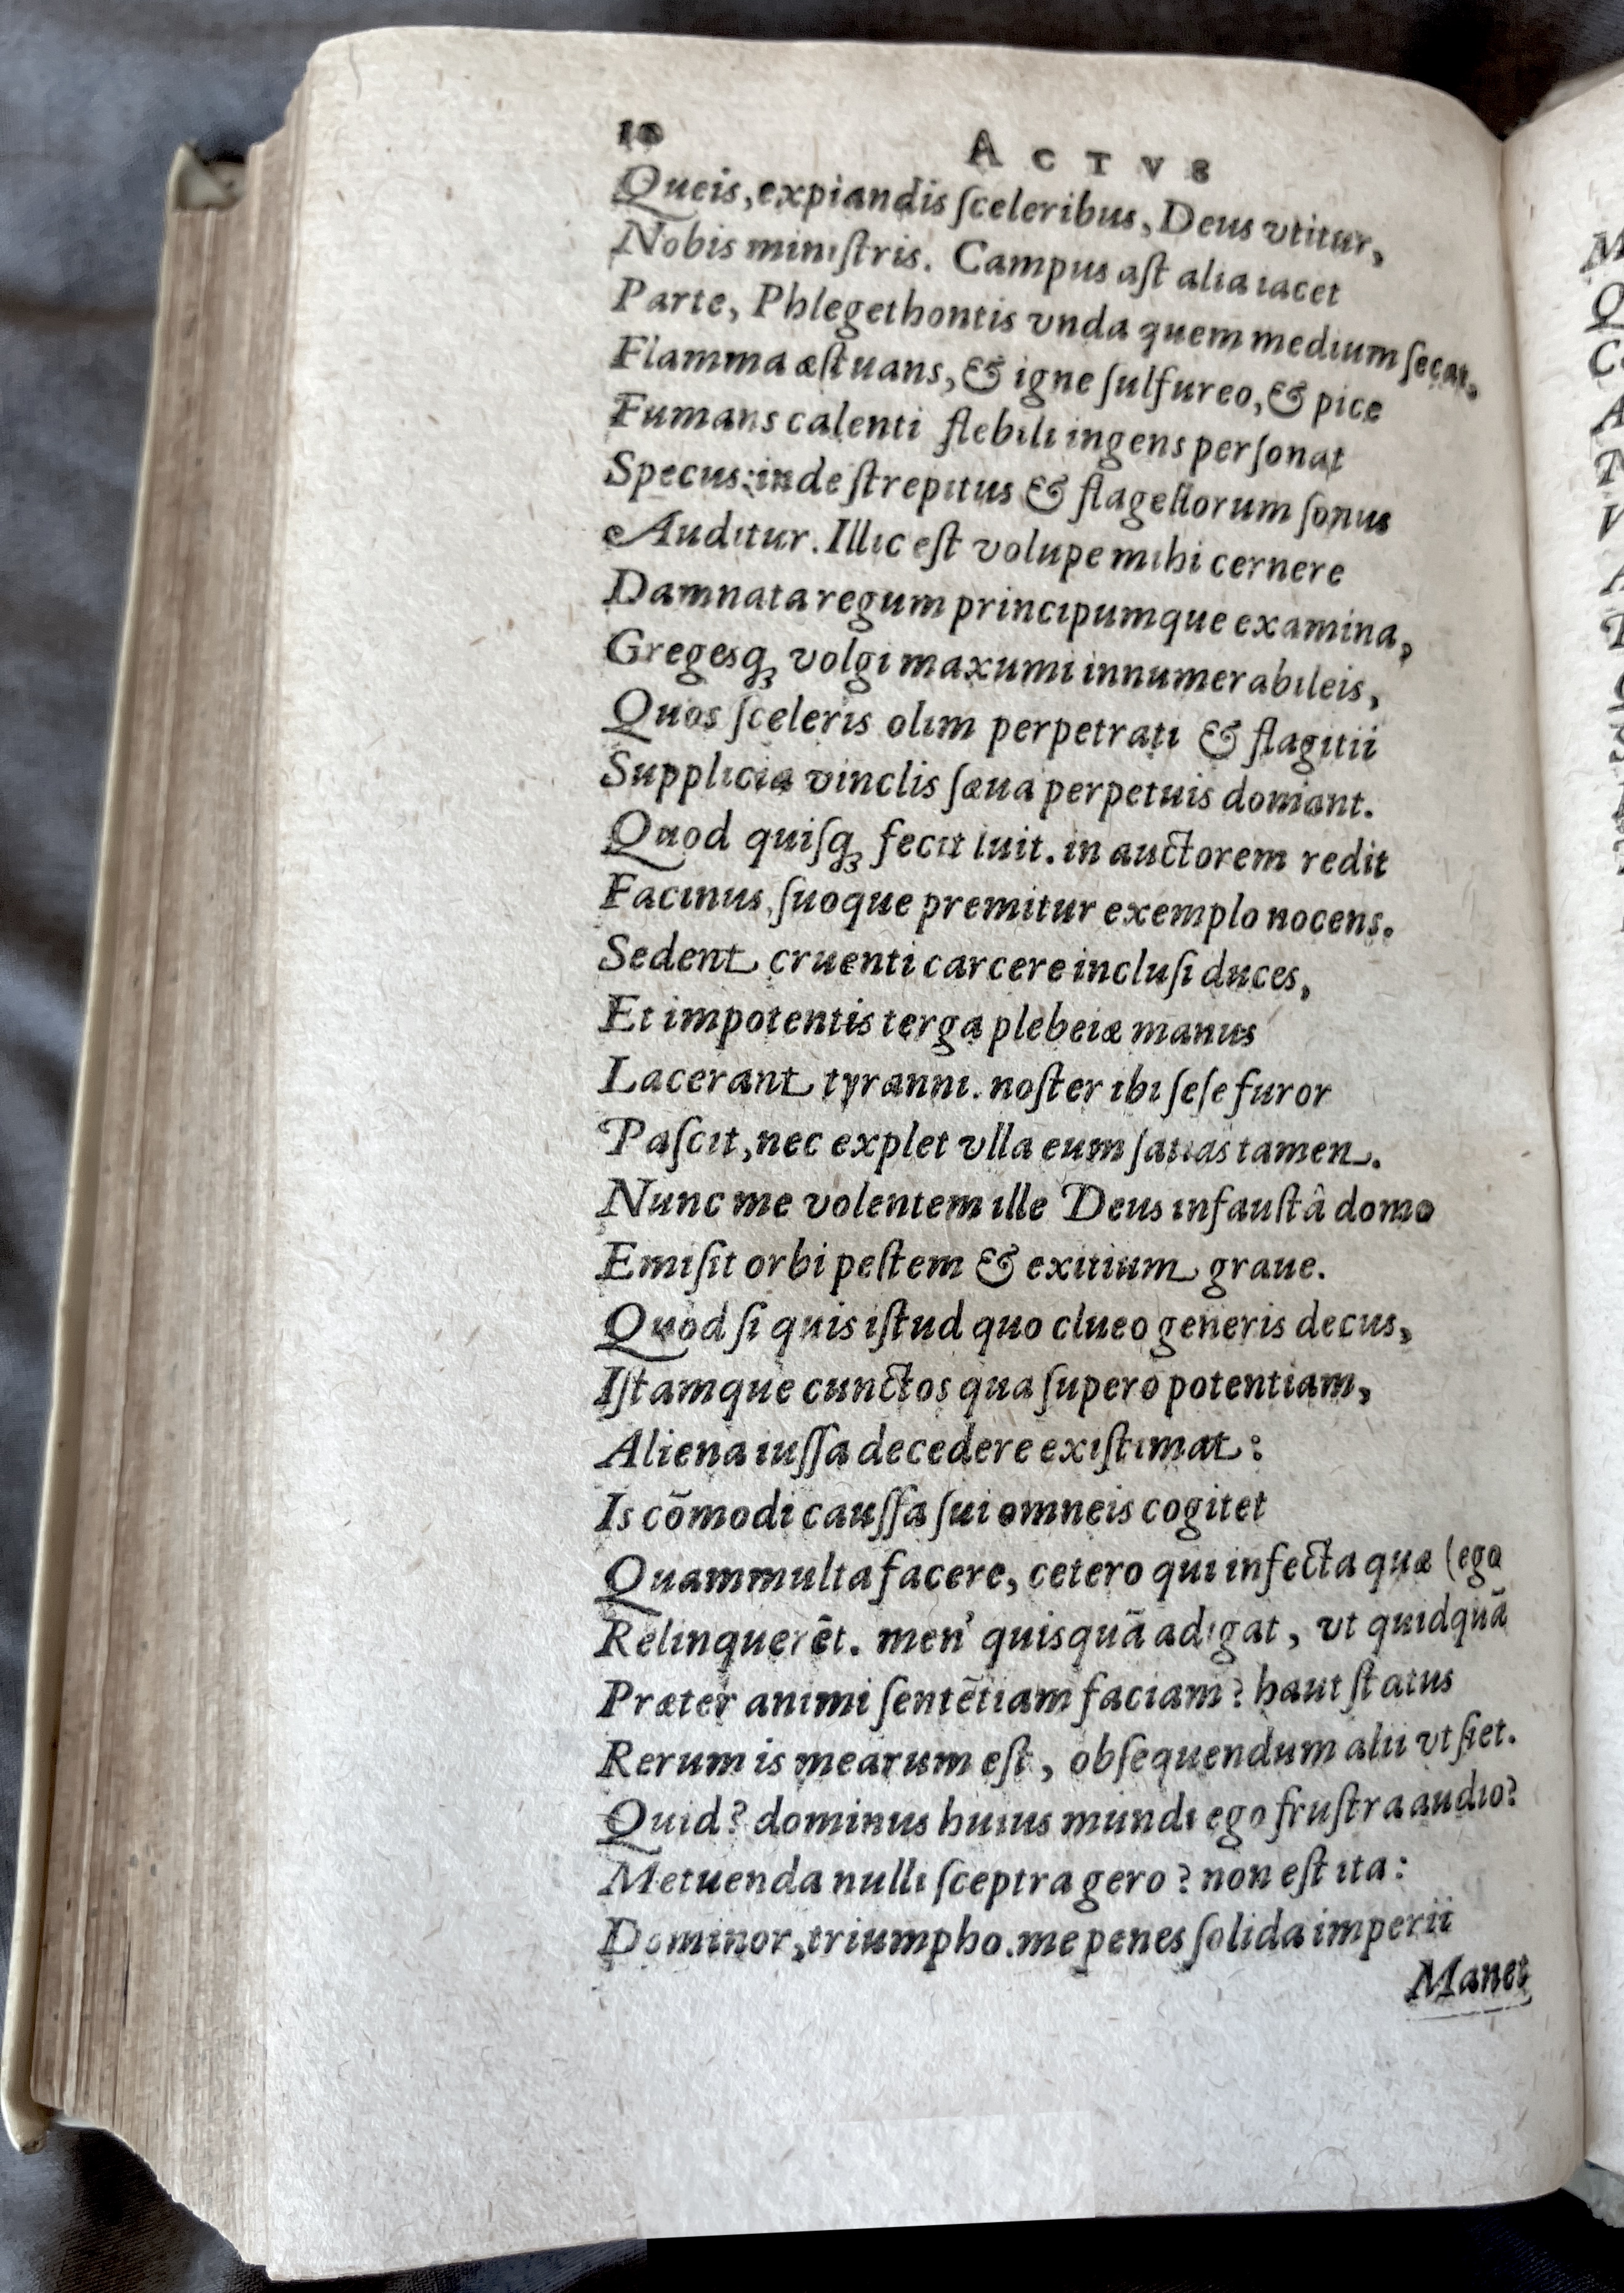 10 ACTVS
Queis, expiandis ſceleribus, Deus vtitur,
Nobis miniſtris. Campus aſt alia iacet
Parte, Phlegethontis vnda quem medium ſecat,
Flamma æſtuans, & igne ſulfureo, & pice
Fumans calenti flebili ingens perſonat
Specus: inde ſtrepitus & flagellorum ſonus
Auditur. Illic eſt volupe mihi cernere
Damnata regum principumque examina,
Gregesqꝫ volgi maxumi innumerabileis,
Quos ſceleris olim perpetrati & flagitii
Supplicia vinclis ſæua perpetuis domant.
Quod quiſqꝫ fecit luit. in auctorem redit
Facinus, ſuoque premitur exemplo nocens.
Sedent cruenti carcere incluſi duces,
Et impotentis terga plebeiæ manus
Lacerant tyranni. noſter ibi ſeſe furor
Paſcit, nec explet vlla eum ſatias tamen.
Nunc me volentem ille Deus infauſtâ domo
Emiſit orbi peſtem & exitium graue.
Quod ſi quis iſtud quo clueo generis decus,
Iſtamque cunctos qua ſupero potentiam,
Aliena iuſſa decedere exiſtimat:
Is cōmodi cauſſa ſui omneis cogitet
Quammulta facere, cetero qui infecta quæ (ego
Relinquerēt. men' quisquā adigat, vt quidquā
Præter animi ſentētiam faciam? haut ſtatus
Rerum is mearum eſt, obſequendum alii vt ſiet.
Quid? dominus huius mundi ego fruſtra audio?
Metuenda nulli ſceptra gero? non eſt ita:
Dominor, triumpho. me penes ſolida imperii
Manet